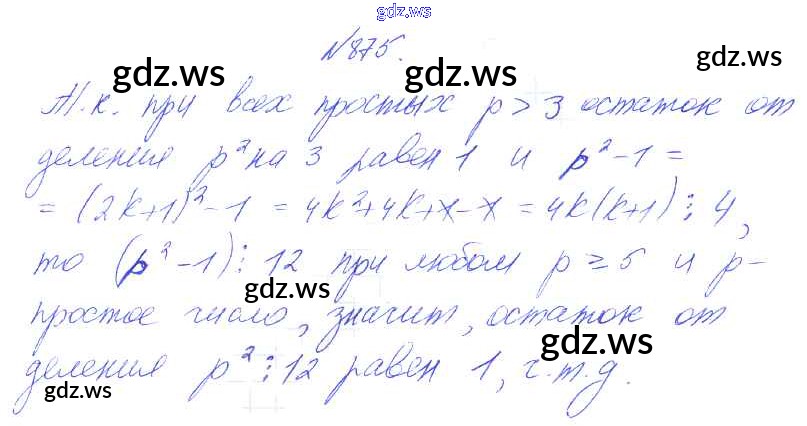 gdz.ws
№875.
gdz.ws
gdz.ws
Т.к. при всех простых p > 3 остаток от
деления p² на 3 равен 1 и p²-1 =
= (2k+1)²-1 = 4k²+4k+1-1 = 4k(k+1)⋮4,
то (p²-1)⋮12 при любом p ≥ 5 и p-
gdz.ws
простое число, значит, остаток от
gdz.ws
деления p²⋮12 равен 1, ч.т.д.
gdz.ws